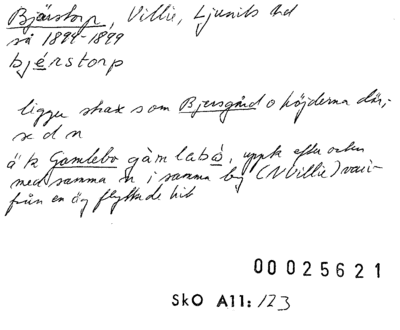 Bjärstorp, Villie, Ljunits hd
så 1894-1899
bjérstorp
ligger strax som Bjersgård o höjderna där,
s d n
ä k Gamlebo gàmlabó, uppk efter orten
med samma n i samma by (N Villie) vari-
från en äg flyttade hit
00025621
SkO A11: 123